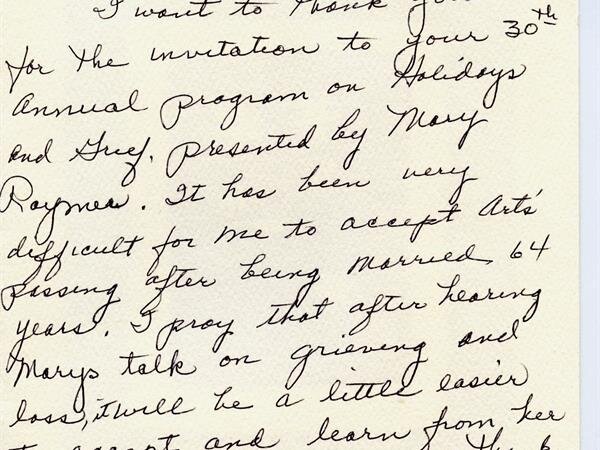 I want to thank you
for the invitation to your 30th
annual program on Holidays
and Grief, presented by Mary
Raymer. It has been very
difficult for me to accept Art's
passing after being married 64
years. I pray that after hearing
Marys talk on grieving and
loss, it will be a little easier
to accept and learn from her